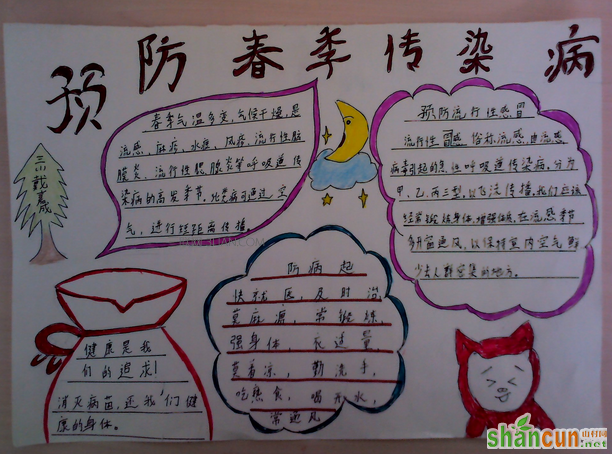 预防春季传染病
春季气温多变,气候干燥,是
流感、麻疹、水痘、风疹、流行性脑
膜炎、流行性腮腺炎等呼吸道传
染病的高发季节,此类病可通过空
气,进行短距离传播。
预防流行性感冒
流行性感冒俗称流感,由流感
病毒引起的急性呼吸道传染病,分为
甲、乙、丙三型,以飞沫传播。我们应该
经常锻炼身体,增强体质,在流感季节
开窗通风,以保持室内空气
少去人群密集的地方。
防病起
快就医,及时治,
莫麻源,常锻练,
强身体,衣适量,
莫着凉,勤洗手,
吃熟食,喝开水,
常通风
健康是我
们的追求!
消灭病苗,还我们健
康的身体。
shancun
.net
山村网